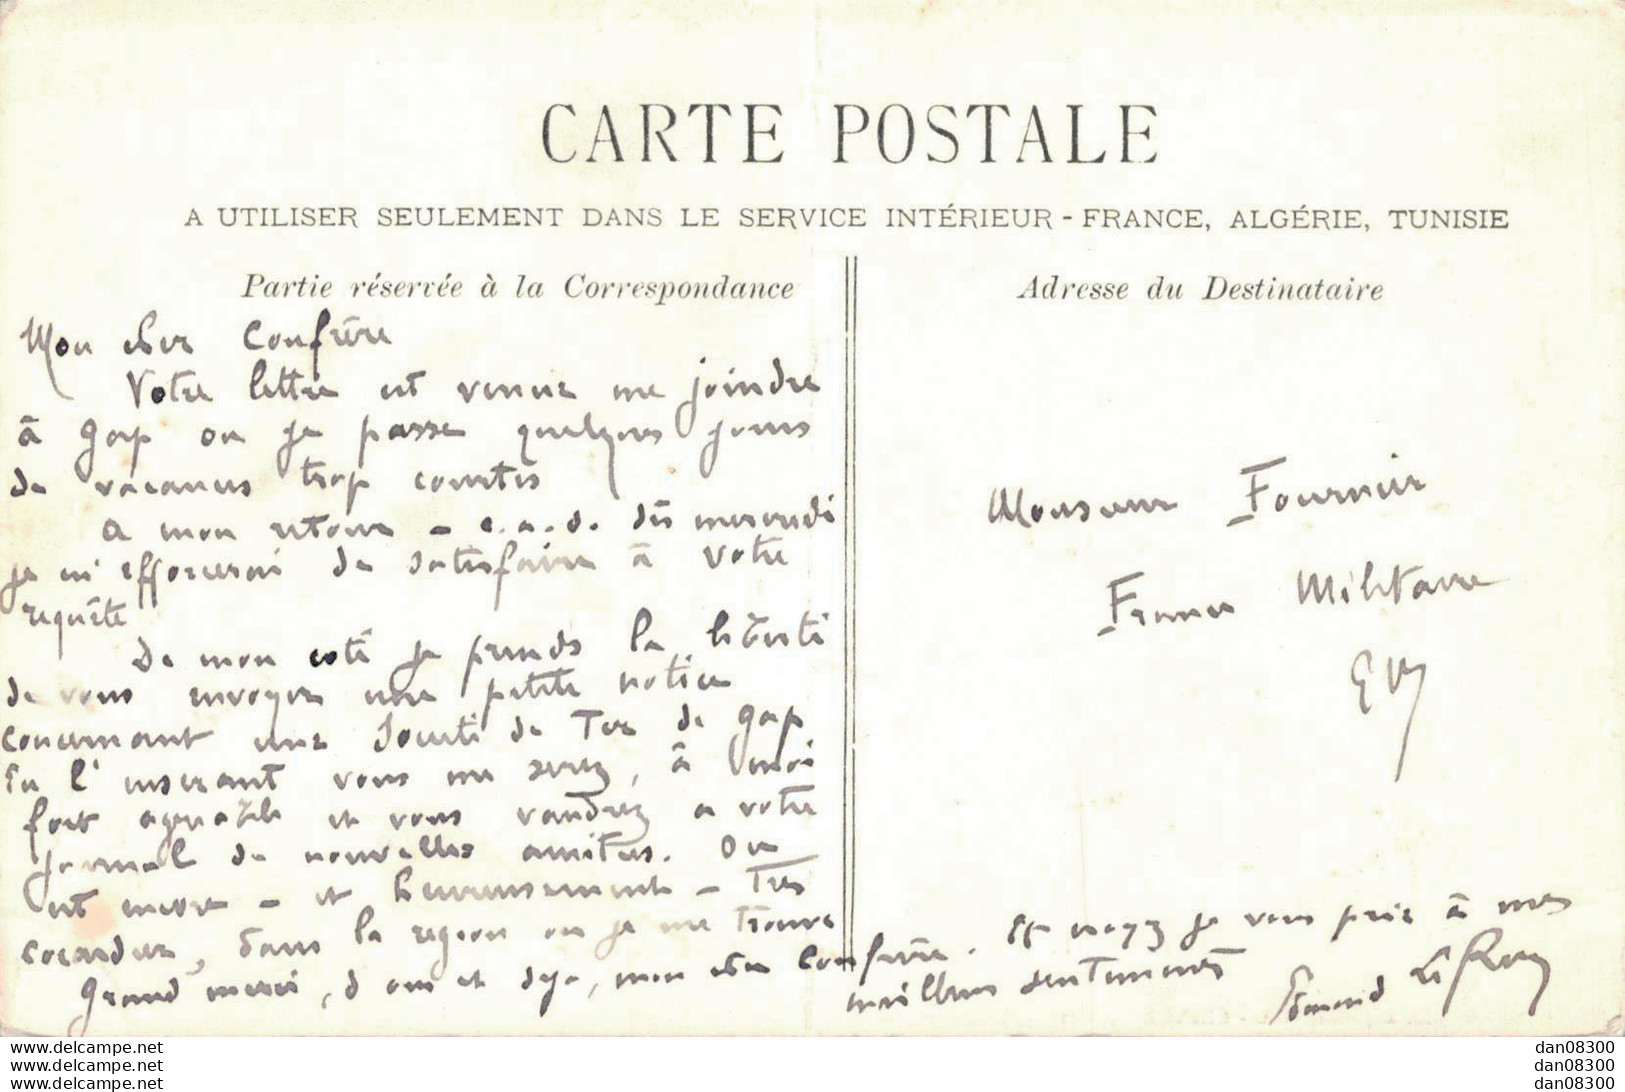 CARTE POSTALE
A UTILISER SEULEMENT DANS LE SERVICE INTÉRIEUR - FRANCE, ALGÉRIE, TUNISIE
Partie réservée à la Correspondance
Adresse du Destinataire
Mon cher Confrère
Votre lettre est venue me joindre
à Gap ou je passe quelques jours
de vacances trop courtes
A mon retour - c.a.d. dès mercredi
je m'efforcerai de satisfaire à votre
requête
De mon coté je prends la liberté
de vous envoyer une petite notice
concernant une Société de Tir de Gap
En l'inserant vous me serez, à moi
fort agreable et vous vaudrez a votre
journal de nouvelles amitiés. On
est encore - et heureusement - Très
cocardier, dans la region ou je me trouve
Grand merci, d'ores et déja, mon cher confrère. Et croyez je vous prie à mes
meilleurs sentiments
Edmond
Monsieur Fournier
France Militaire
EV
www.delcampe.net
www.delcampe.net
www.delcampe.net
dan08300
dan08300
dan08300